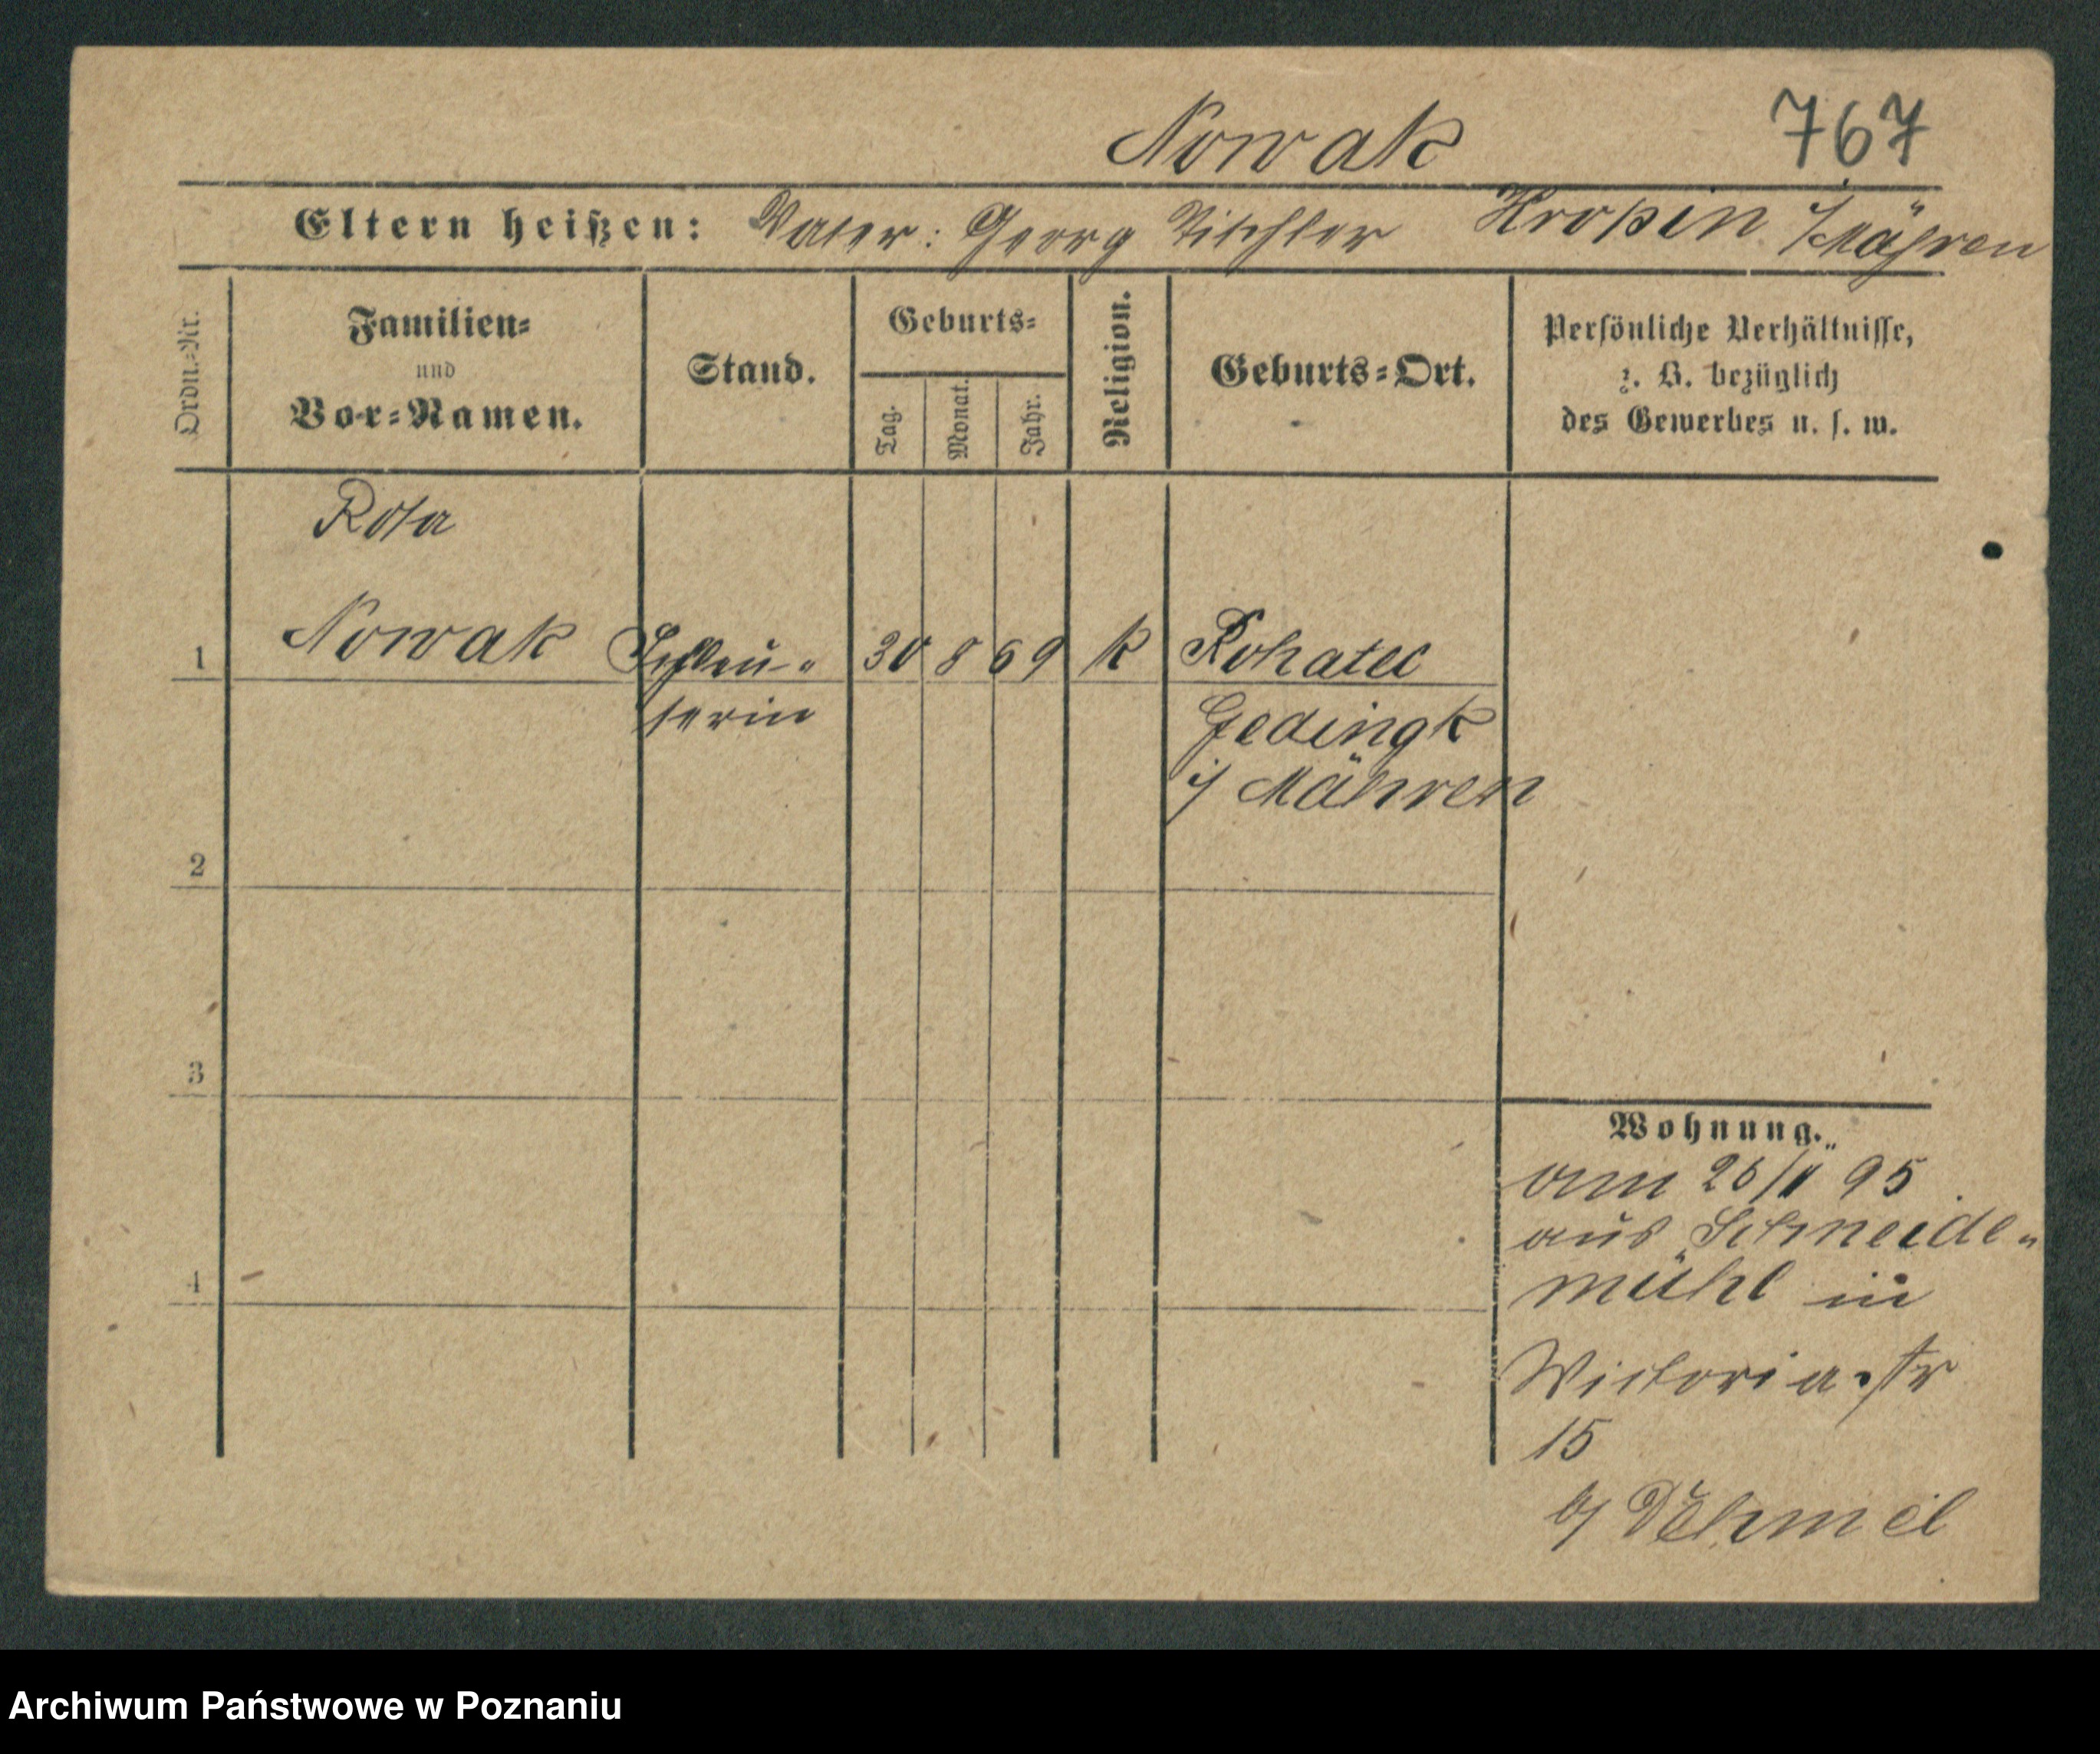 Nowak 767
Eltern heißen: Vater: Georg Tischler Kropin i/Mähren
Ordn.=Nr.
Familien=
und
Vor=Namen.
Stand.
Geburts=
Tag.
Monat.
Jahr.
Religion.
Geburts=Ort.
Persönliche Verhältnisse,
z. B. bezüglich
des Gewerbes u. s. w.
Rosa
1 Nowak Schleu- 30 8 69 k Rohatec
serin Gedingk
i/ Mähren
2
3
4
Wohnung.
am 26/II 95
aus Schneide-
mühl in
Victoria-str
15
b/ Dehmel
Archiwum Państwowe w Poznaniu